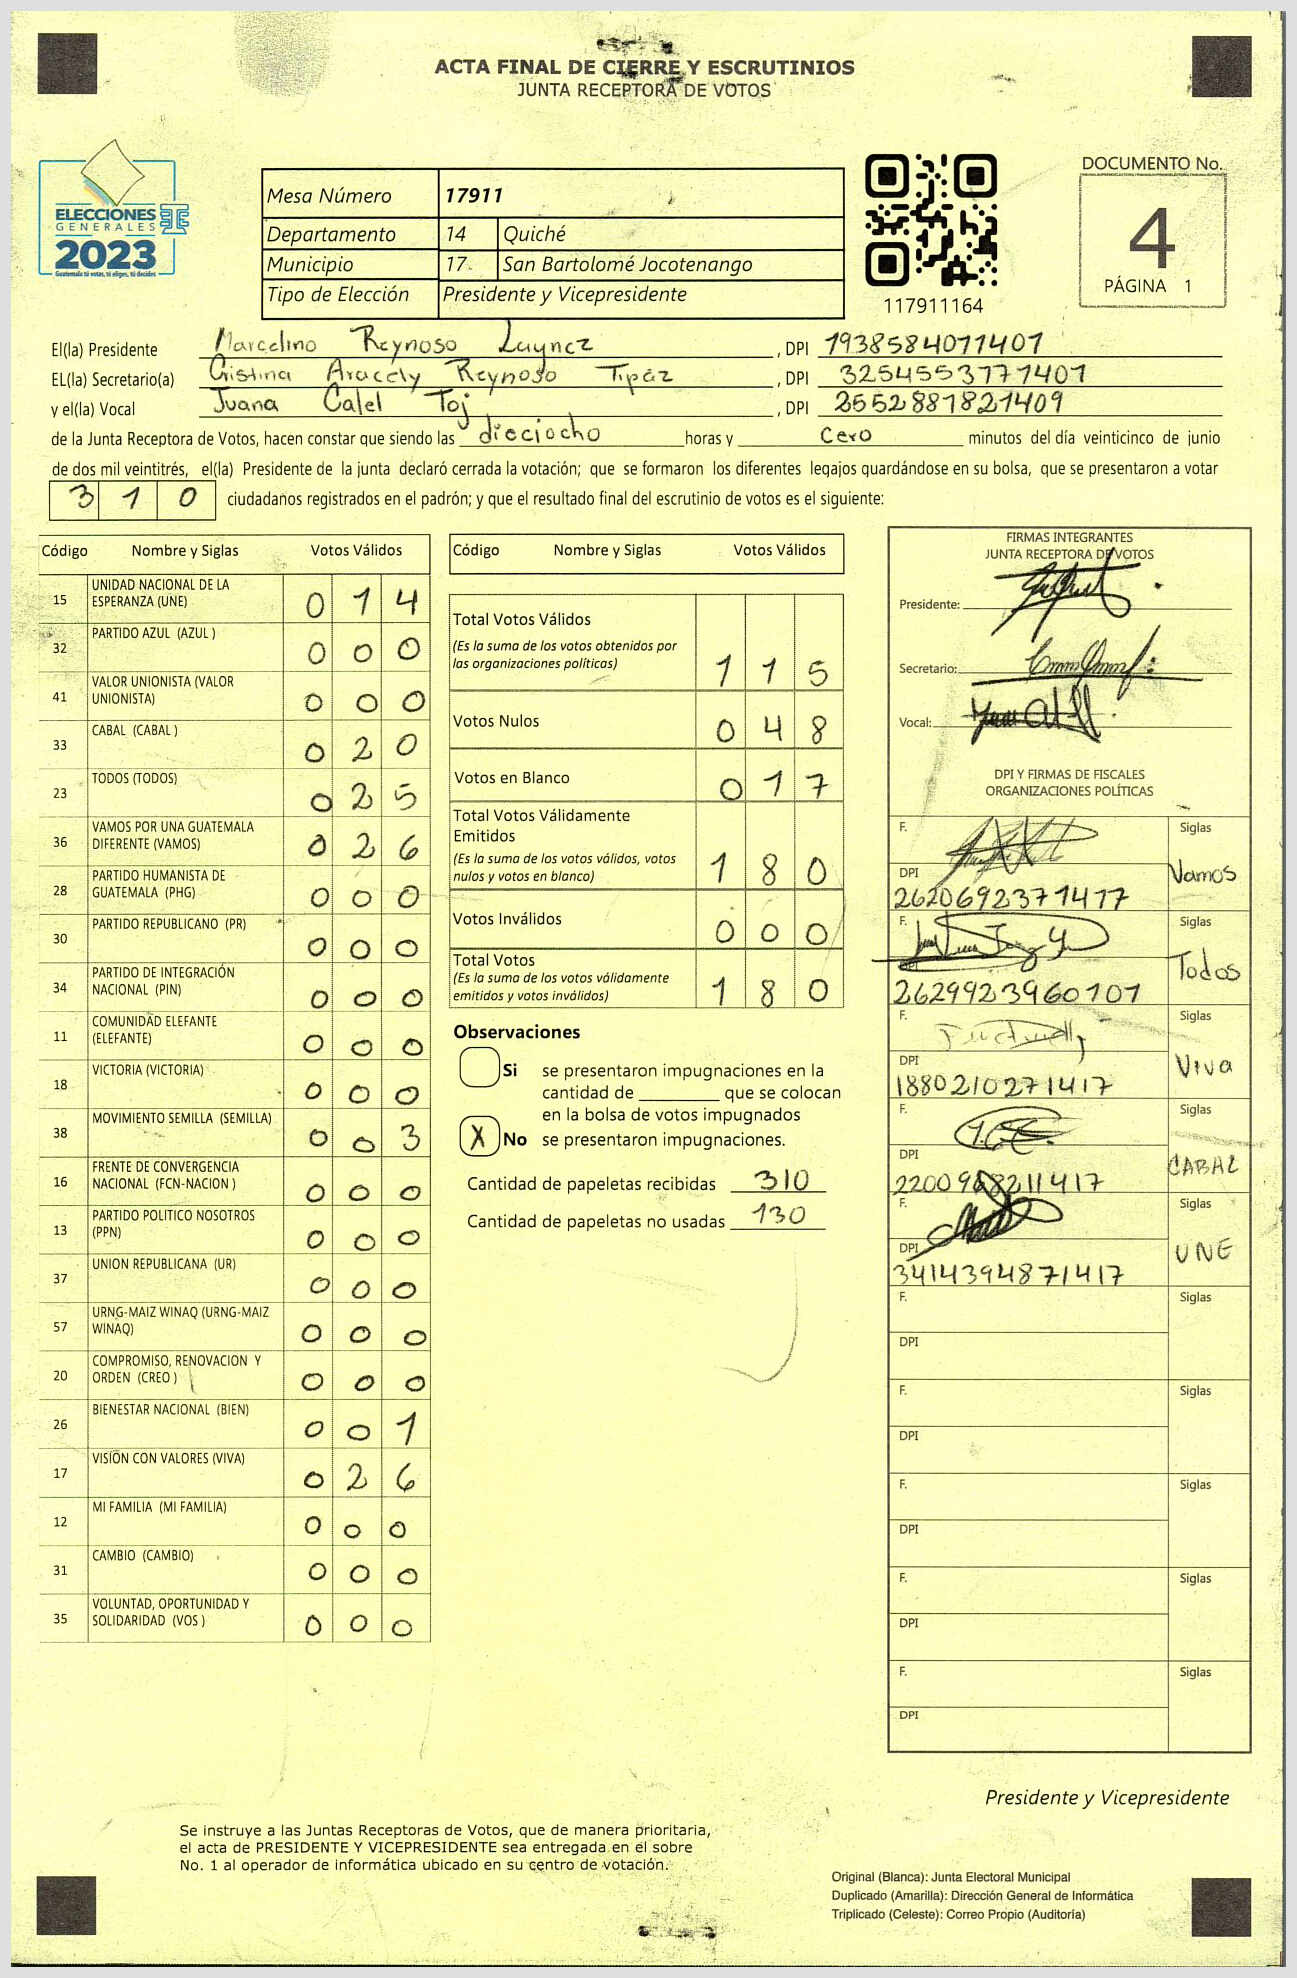 ACTA FINAL DE CIERRE Y ESCRUTINIOS
JUNTA RECEPTORA DE VOTOS
ELECCIONES
GENERALES
2023
Guatemala tú votas, tú eliges, tú decides
Mesa Número 17911
Departamento 14 Quiché
Municipio 17 San Bartolomé Jocotenango
Tipo de Elección Presidente y Vicepresidente
117911164
DOCUMENTO No.
4
PÁGINA 1
El(la) Presidente Marcelino Reynoso Laynez, DPI 1938584071401
EL(la) Secretario(a) Cristina Aracely Reynoso Tipáz, DPI 3254553771401
y el(la) Vocal Juana Calel Toj, DPI 2552881821409
de la Junta Receptora de Votos, hacen constar que siendo las dieciocho horas y cero minutos del día veinticinco de junio
de dos mil veintitrés, el(la) Presidente de la junta declaró cerrada la votación; que se formaron los diferentes legajos guardándose en su bolsa, que se presentaron a votar
310 ciudadanos registrados en el padrón; y que el resultado final del escrutinio de votos es el siguiente:
Código Nombre y Siglas Votos Válidos
15 UNIDAD NACIONAL DE LA ESPERANZA (UNE) 014
32 PARTIDO AZUL (AZUL ) 000
41 VALOR UNIONISTA (VALOR UNIONISTA) 000
33 CABAL (CABAL ) 020
23 TODOS (TODOS) 025
36 VAMOS POR UNA GUATEMALA DIFERENTE (VAMOS) 026
28 PARTIDO HUMANISTA DE GUATEMALA (PHG) 000
30 PARTIDO REPUBLICANO (PR) 000
34 PARTIDO DE INTEGRACIÓN NACIONAL (PIN) 000
11 COMUNIDAD ELEFANTE (ELEFANTE) 000
18 VICTORIA (VICTORIA) 000
38 MOVIMIENTO SEMILLA (SEMILLA) 003
16 FRENTE DE CONVERGENCIA NACIONAL (FCN-NACION ) 000
13 PARTIDO POLITICO NOSOTROS (PPN) 000
37 UNION REPUBLICANA (UR) 000
57 URNG-MAIZ WINAQ (URNG-MAIZ WINAQ) 000
20 COMPROMISO, RENOVACION Y ORDEN (CREO ) 000
26 BIENESTAR NACIONAL (BIEN) 001
17 VISIÓN CON VALORES (VIVA) 026
12 MI FAMILIA (MI FAMILIA) 000
31 CAMBIO (CAMBIO) 000
35 VOLUNTAD, OPORTUNIDAD Y SOLIDARIDAD (VOS ) 000
Código Nombre y Siglas Votos Válidos
Total Votos Válidos
(Es la suma de los votos obtenidos por
las organizaciones políticas) 115
Votos Nulos 048
Votos en Blanco 017
Total Votos Válidamente
Emitidos
(Es la suma de los votos válidos, votos
nulos y votos en blanco) 180
Votos Inválidos 000
Total Votos
(Es la suma de los votos válidamente
emitidos y votos inválidos) 180
Observaciones
Si se presentaron impugnaciones en la
cantidad de ________ que se colocan
en la bolsa de votos impugnados
X No se presentaron impugnaciones.
Cantidad de papeletas recibidas 310
Cantidad de papeletas no usadas 130
FIRMAS INTEGRANTES
JUNTA RECEPTORA DE VOTOS
Presidente:
Secretario:
Vocal:
DPI Y FIRMAS DE FISCALES
ORGANIZACIONES POLÍTICAS
F. Siglas
DPI 2620692371417 Vamos
F. Siglas
2629923960101 Todos
F. Siglas
DPI 1880210271417 Viva
F. Siglas
DPI 2200968211417 CABAL
F. Siglas
DPI 3414394871417 UNE
F. Siglas
DPI
F. Siglas
DPI
F. Siglas
DPI
F. Siglas
DPI
F. Siglas
DPI
Presidente y Vicepresidente
Se instruye a las Juntas Receptoras de Votos, que de manera prioritaria,
el acta de PRESIDENTE Y VICEPRESIDENTE sea entregada en el sobre
No. 1 al operador de informática ubicado en su centro de votación.
Original (Blanca): Junta Electoral Municipal
Duplicado (Amarilla): Dirección General de Informática
Triplicado (Celeste): Correo Propio (Auditoría)